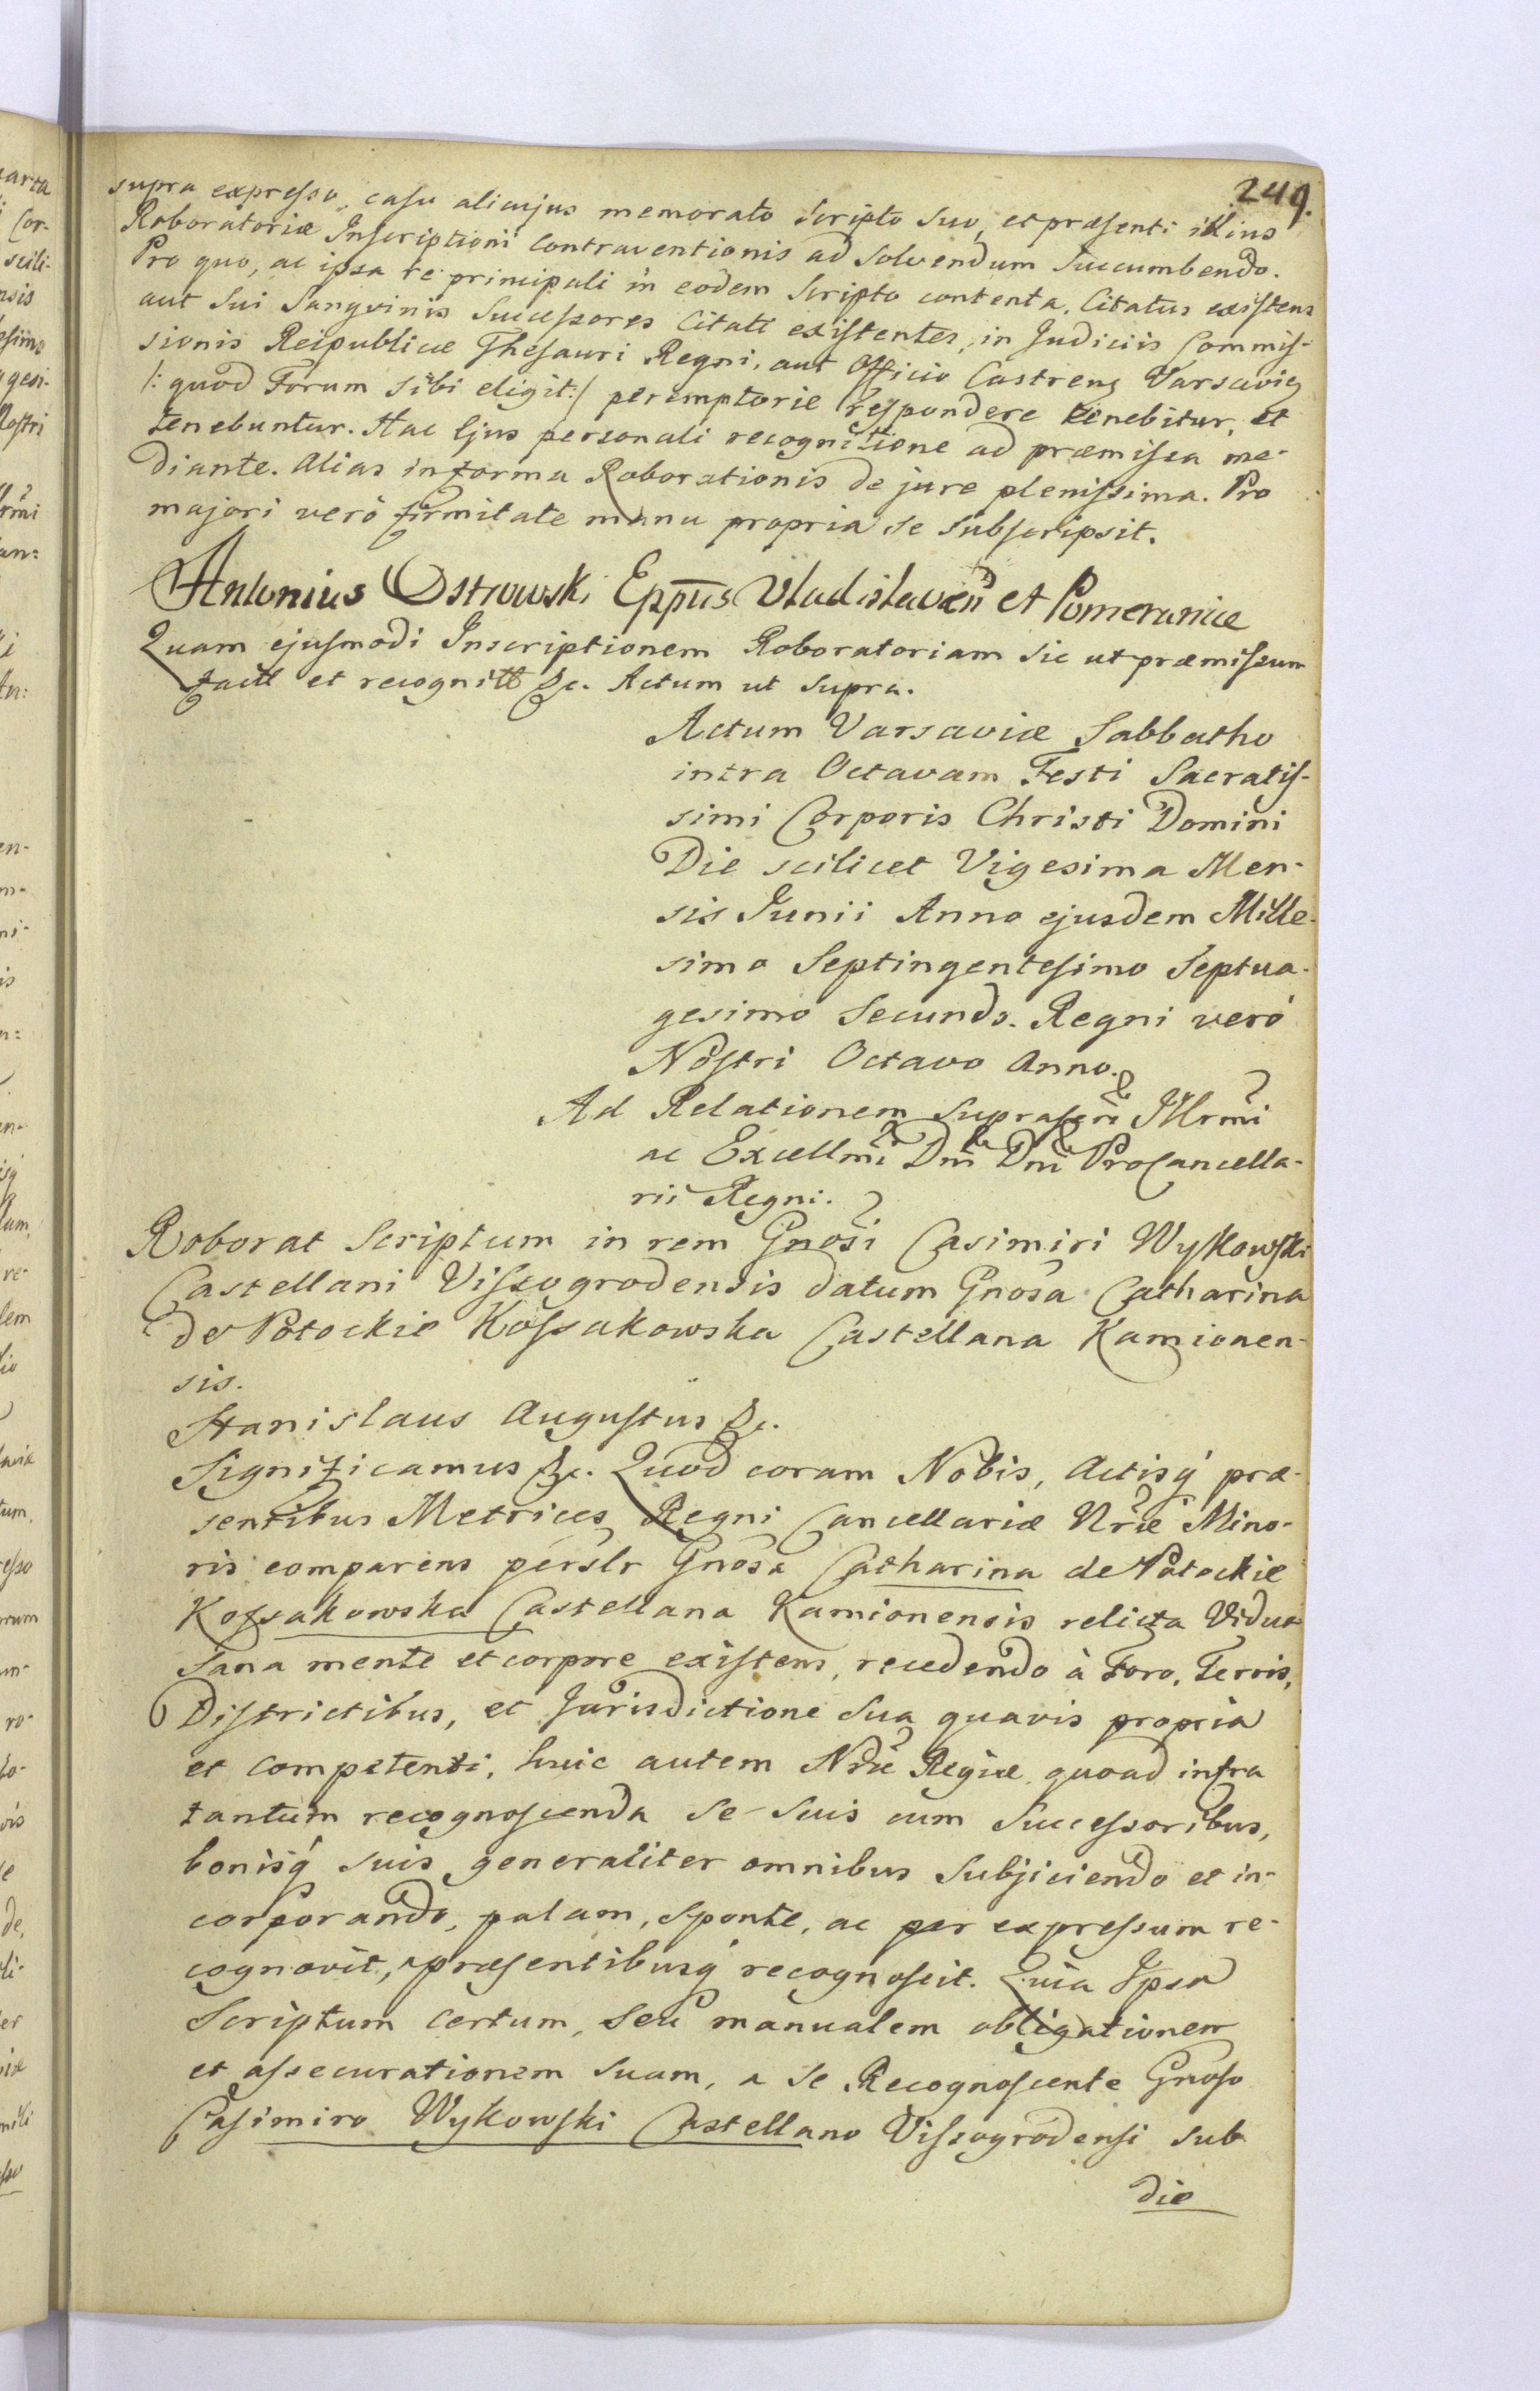 249.
supra expresso, casu alicujus memorato Scripto Suo, et præsenti illius
Roboratoriæ Inscriptioni Contraventionis ad Solvendum Succumbendo.
Pro quo, ac ipsa re principali in eodem Scripto contenta, Citatus existens
aut Sui Sangvinis Successores Citati existentes, in Judiciis Commis-
sionis Reipublicæ Thesauri Regni, aut Officio Castrens Varsavien
/: quod Forum Sibi eligit :/ peremptorie respondere tenebitur, et
tenebuntur. Hac Ejus personali recognitione ad præmissa me-
diante. Alias in forma Roborationis de jure plenissima. Pro
majori verò firmitate manu propria se Subscripsit.
Antonius Ostrowski Eppus Vladislavien et Pomeraniæ
Quam ejusmodi Inscriptionem Roboratoriam Sic ut præmissum
factt et recognitt &c. Actum ut Supra.
Actum Varsaviæ Sabbatho
intra Octavam Festi Sacratis-
simi Corporis Christi Domini
Die scilicet Vigesima Men-
sis Junii Anno ejusdem Mille-
simo Septingentesimo Septua-
gesimo Secundo. Regni verò
Nostri Octavo Anno.
Ad Relationem Suprascri Illrmi
ac Excellmi Dni Dni ProCancella-
rii Regni.
Roborat Scriptum in rem Gnosi Casimiri Wykowski
Castellani Vissogrodensis datum Gnosa Catharina
de Potockie Kossakowska Castellana Kamionen-
sis.
Stanislaus Augustus &c.
Significamus &c. Quod coram Nobis, Actisq́ præ-
sentibus Metrices Regni Cancellariæ Nræ Mino-
ris comparens perslr Gnosa Catharina de Potockie
Kossakowska Castellana Kamionensis relicta Vidua
Sana mente et corpore existens, recedendo à Foro, Terris,
Districtibus, et Jurisdictione Sua quavis propria
et competenti, huic autem Nræ Regiæ quoad infra
tantum recognoscenda Se Suis cum Successoribus,
bonisq́ suis generaliter omnibus Subjiciendo et in-
corporando, palam, Sponte, ac per expressum re-
cognovit, præsentibusq́ recognoscit. Quia Ipsa
Scriptum Certum, Seu manualem obligationem
et assecurationem Suam, a Se Recognoscente Gnoso
Casimiro Wykowski Castellano Vissogrodensi Sub
die